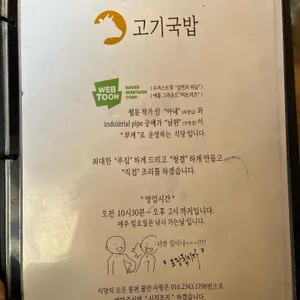 고기국밥
WEB
TOON
NAVER
WEBTOON
CORP.
웹툰 작가 인 "아내" 와
industrial pipe 공예가 "남편"
"부캐"로 운영하는 식당 입니다.
최대한 "푸짐" 하게 드리고 "청결" 하게 만들고
"직접" 조리를 하겠습니다.
* 영업시간 *
오전 10시30분~ 오후 2시 까지입니다.
매주 일요일은 낚시 가는날 입니다.
식당의 모든 불편 불만 사항은 010.2343.1798번으로